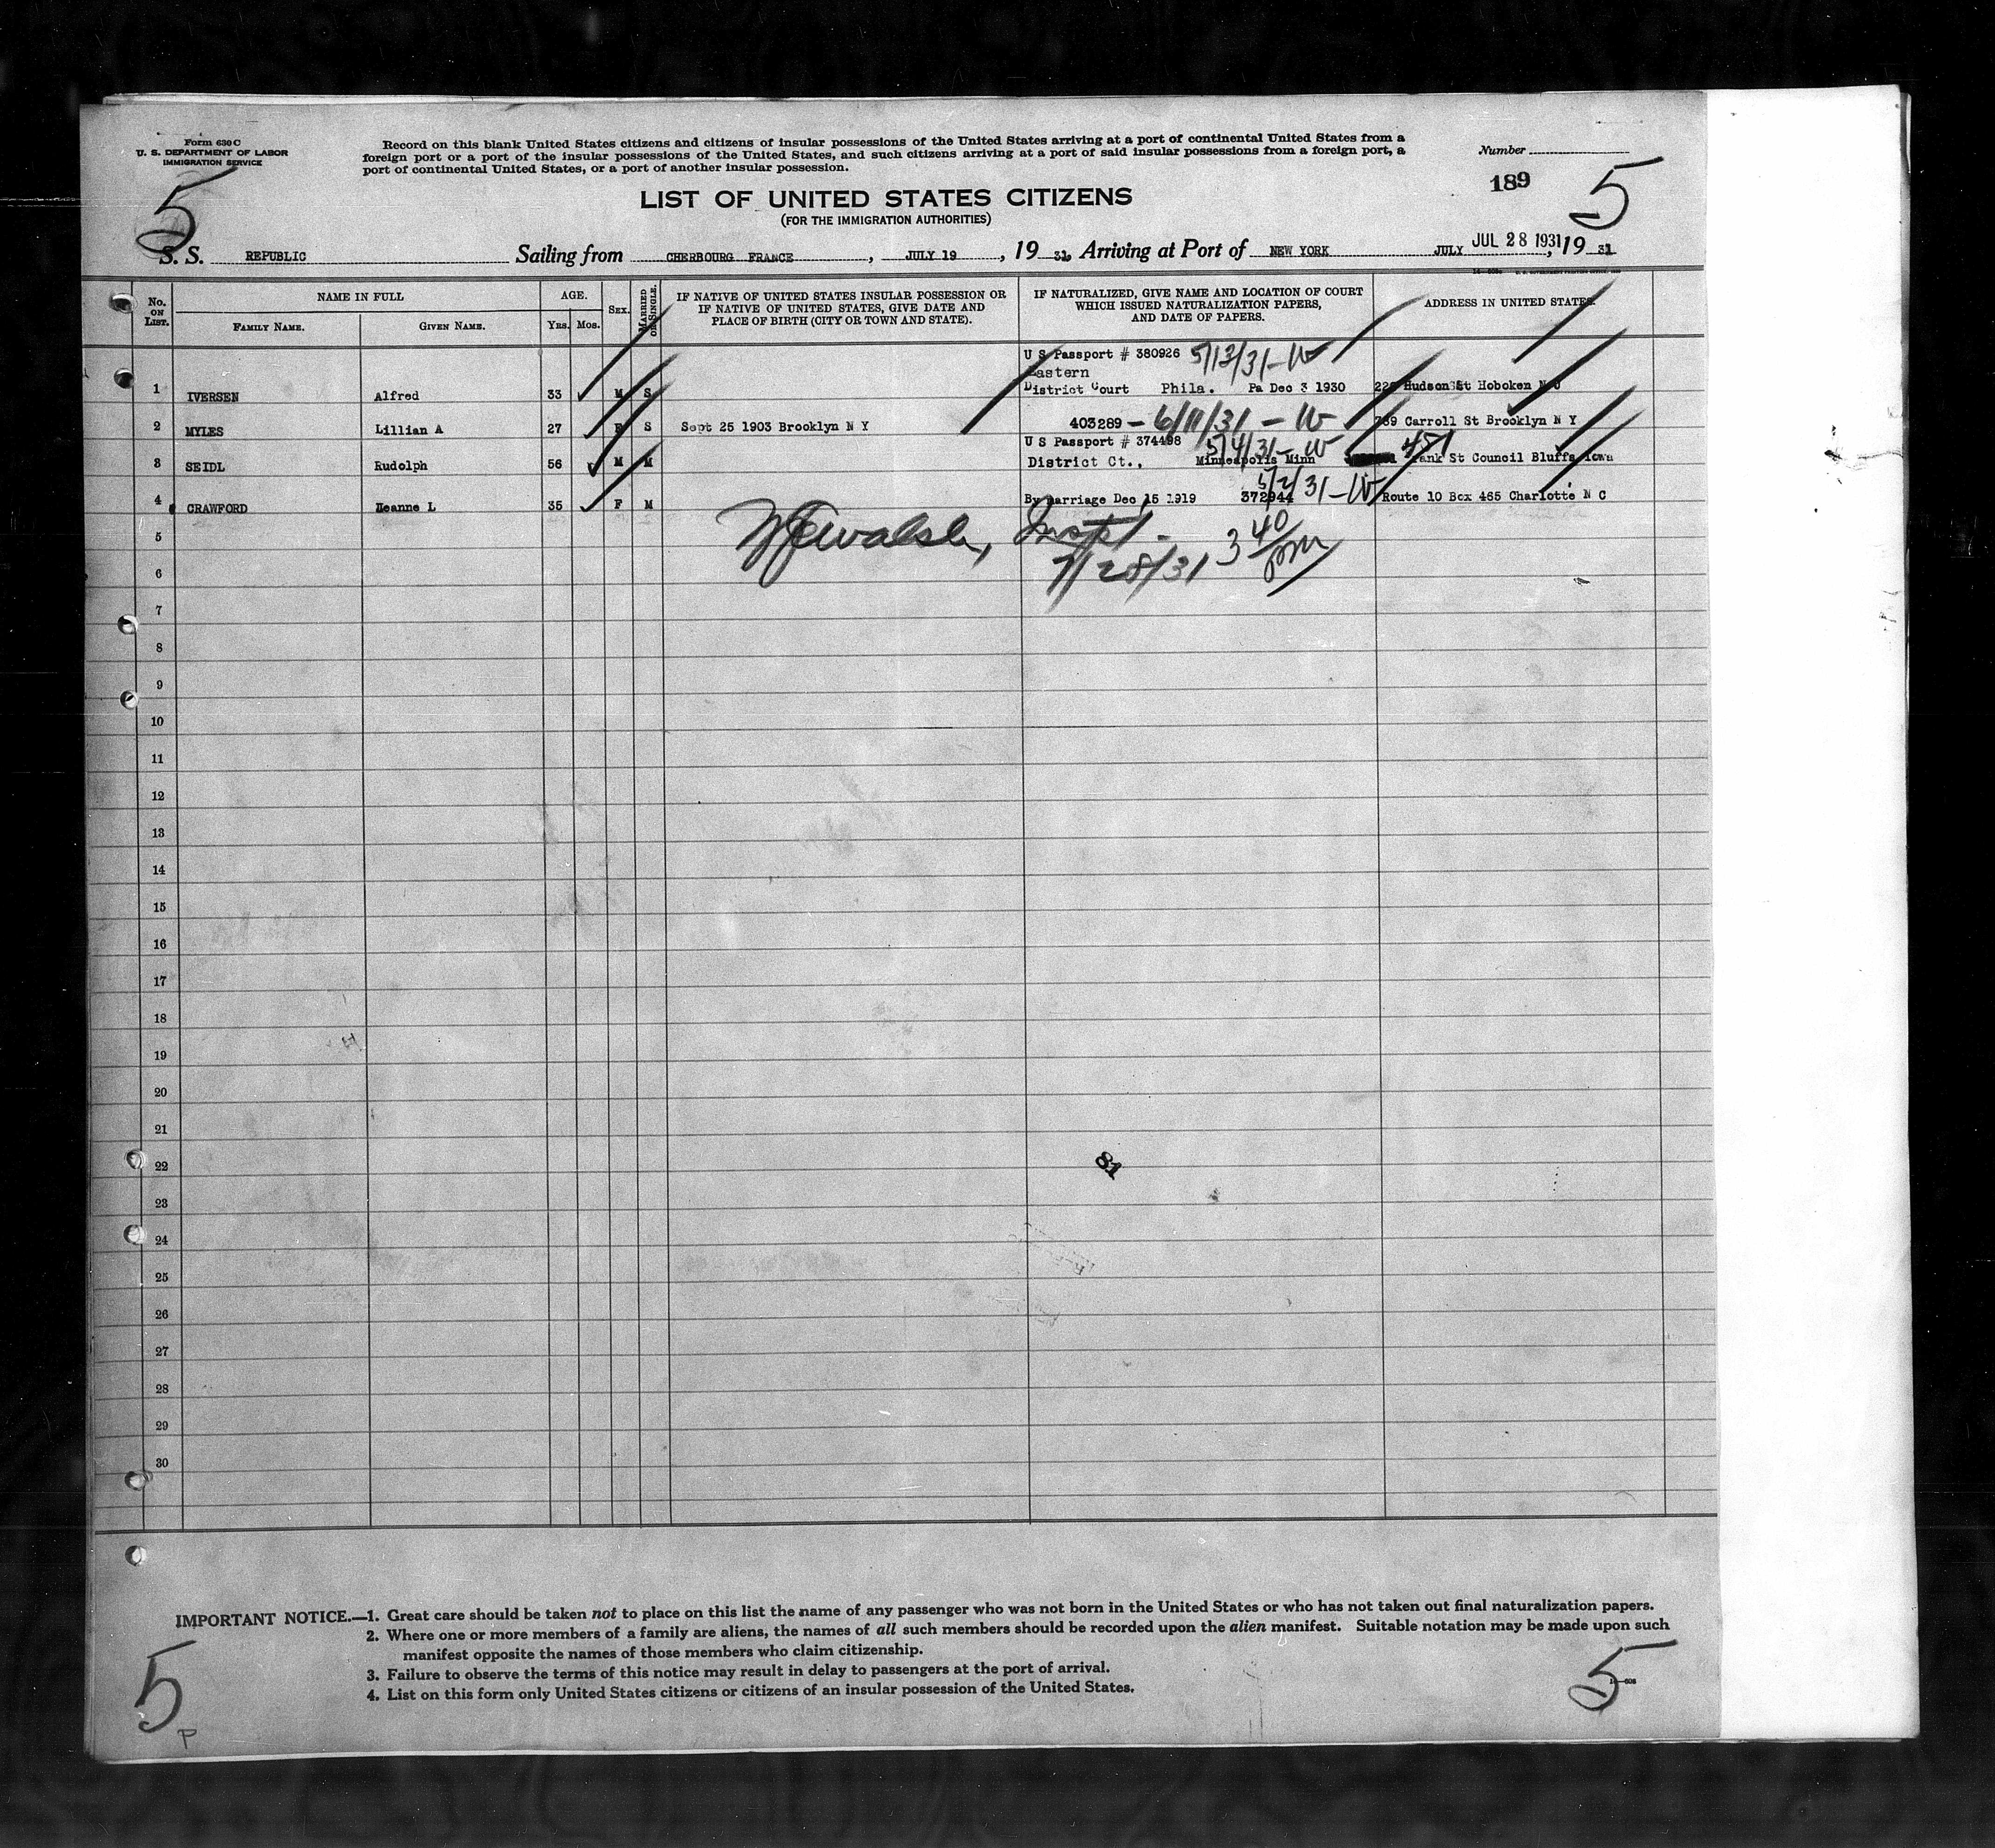 Form 630 C
U. S. DEPARTMENT OF LABOR
IMMIGRATION SERVICE
Record on this blank United States citizens and citizens of insular possessions of the United States arriving at a port of continental United States from a
foreign port or a port of the insular possessions of the United States, and such citizens arriving at a port of said insular possessions from a foreign port, a
port of continental United States, or a port of another insular possession.
Number
189
5
5
LIST OF UNITED STATES CITIZENS
(FOR THE IMMIGRATION AUTHORITIES)
S. S. REPUBLIC Sailing from CHERBOURG FRANCE, JULY 19, 19 31, Arriving at Port of NEW YORK JULY JUL 28 1931, 19 31
No. ON LIST. NAME IN FULL AGE. SEX. MARRIED OR SINGLE. IF NATIVE OF UNITED STATES INSULAR POSSESSION OR IF NATIVE OF UNITED STATES, GIVE DATE AND PLACE OF BIRTH (CITY OR TOWN AND STATE). IF NATURALIZED, GIVE NAME AND LOCATION OF COURT WHICH ISSUED NATURALIZATION PAPERS, AND DATE OF PAPERS. ADDRESS IN UNITED STATES.
FAMILY NAME. GIVEN NAME. YRS. MOS.
U S Passport # 380926 5/13/31-W
Eastern
1 IVERSEN Alfred 33 M S District Court Phila. Pa Dec 3 1930 Hudson St Hoboken N J
403289 - 6/11/31 - W
2 MYLES Lillian A 27 F S Sept 25 1903 Brooklyn N Y Carroll St Brooklyn N Y
U S Passport # 374498 5/4/31-W
3 SEIDL Rudolph 56 M M District Ct., Minneapolis Minn St Council Bluffs Iowa
5/2/31-W
4 CRAWFORD Leanne L 35 F M By marriage Dec 15 1919 372944 Route 10 Box 465 Charlotte N C
Walsh, Inspt.
7/28/31 3 40 pm
5
6
7
8
9
10
11
12
13
14
15
16
17
18
19
20
21
22
81
23
24
25
26
27
28
29
30
IMPORTANT NOTICE.—1. Great care should be taken not to place on this list the name of any passenger who was not born in the United States or who has not taken out final naturalization papers.
2. Where one or more members of a family are aliens, the names of all such members should be recorded upon the alien manifest. Suitable notation may be made upon such
manifest opposite the names of those members who claim citizenship.
3. Failure to observe the terms of this notice may result in delay to passengers at the port of arrival.
4. List on this form only United States citizens or citizens of an insular possession of the United States.
5
P
5